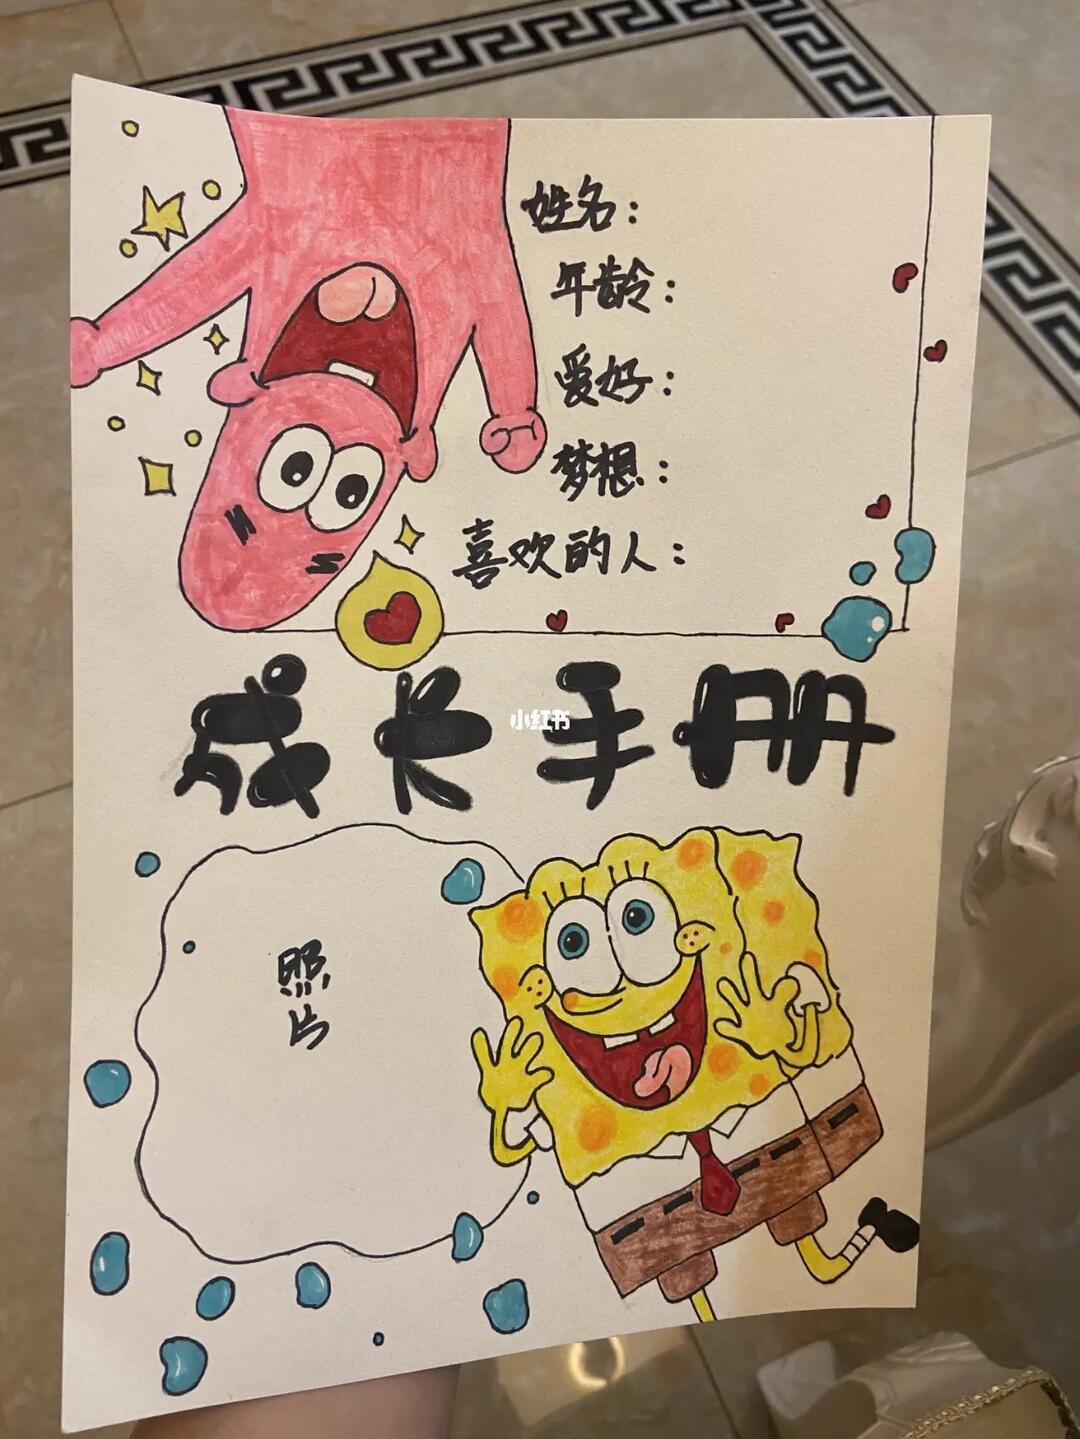 姓名：
年龄：
爱好：
梦想：
喜欢的人：
成长手册
小红书
照
片